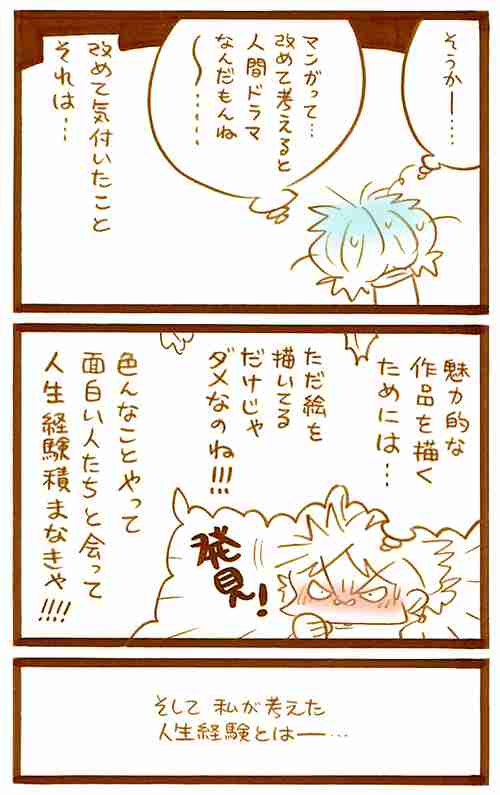 そうかー‥‥
マンガって‥
改めて考えると
人間ドラマ
なんだもんね
〜〜‥‥‥
改めて気付いたこと
それは‥‥
魅力的な
作品を描く
ためには‥‥
ただ絵を
描いてる
だけじゃ
ダメなのね!!!
色んなことやって
面白い人たちと会って
人生経験積まなきゃ!!!!
発見!
そして 私が考えた
人生経験とは――‥‥